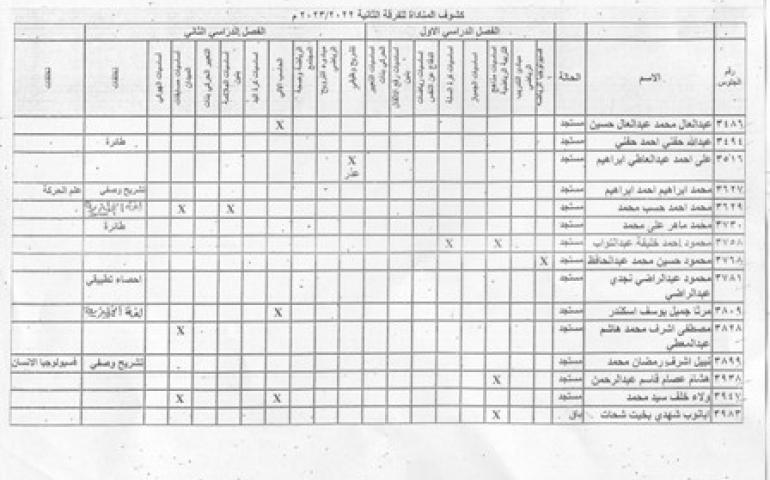 كشوف المناداة للفرقة الثانية ٢٠٢٣/٢٠٢٢ م
رقم الجلوس الاسم الحالة الفصل الدراسي الاول الفصل الدراسي الثاني
فسيولوجيا الرياضة
التربية الرياضية
اساسيات كرة السلة
الدفاع عن النفس
تشريح وظيفي
الحاسب الالي
اساسيات كرة اليد
التعبير الحركي بنات
اساسيات مسابقات الميدان
تخلفات
تخلفات
٣٤٨٦ عبدالعال محمد عبدالعال حسين مستجد X
٣٤٩٤ عبدالله حفني احمد حفني مستجد طائرة
٣٥١٦ على احمد عبدالعاطي ابراهيم مستجد X عذر
٣٦٢٧ محمد ابراهيم احمد ابراهيم مستجد تشريح وصفي علم الحركة
٣٦٢٩ محمد احمد حسب محمد مستجد X X
٣٧٣٠ محمد ماهر على محمد مستجد طائرة
٣٧٥٨ محمود احمد خليفة عبدالتواب مستجد X X
٣٧٦٨ محمود حسين محمد عبدالحافظ مستجد X
٣٧٨١ محمود عبدالراضي نجدي عبدالراضي مستجد احصاء تطبيقي
٣٨٠٩ مرنا جميل يوسف اسكندر مستجد X
٣٨٢٨ مصطفى اشرف محمد هاشم عبدالمعطي مستجد X
٣٨٩٩ نبيل اشرف رمضان محمد مستجد تشريح وصفي فسيولوجيا الانسان
٣٩٣٨ هشام عصام قاسم عبدالرحمن مستجد X
٣٩٤٧ ولاء خلف سيد محمد مستجد X X
٣٩٨٣ ابانوب شهدي بخيت شحات باق X